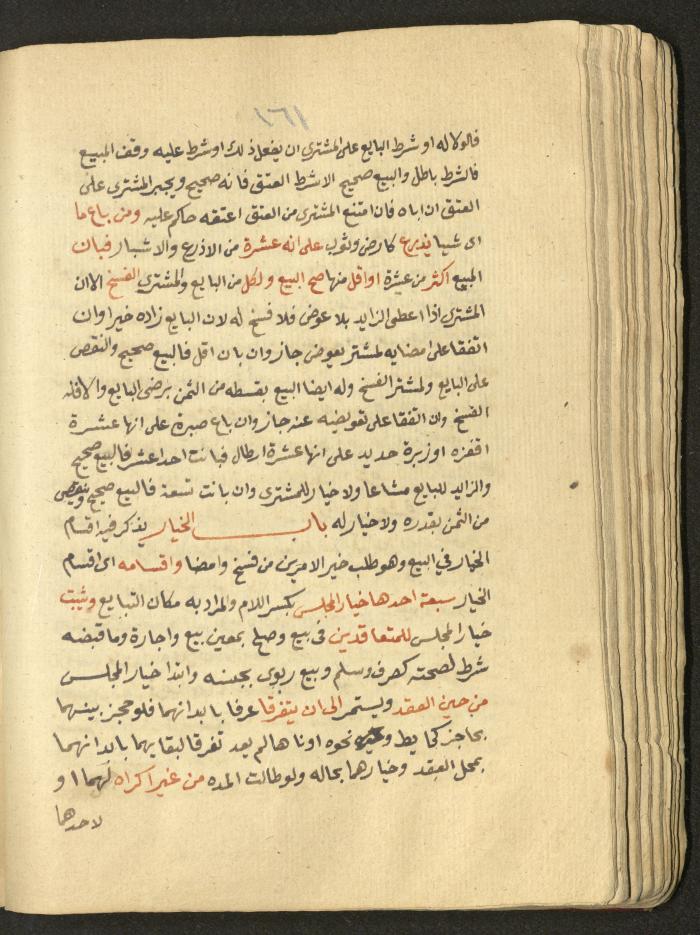 ١٦١
فالولا له او شرط البايع على المشتري ان يفعل ذلك او شرط عليه وقف المبيع
فالشرط باطل والبيع صحيح الا شرط العتق فانه صحيح ويجبر المشتري على
العتق ان اباه فان امتنع المشتري من العتق اعتقه حاكم عليه ومن باع ما
اى شيا يذرع كارض وثوب على انه عشرة من الاذرع والاشبار فبان
المبيع اكثر من عشرة او اقل منها صح البيع ولكل من البايع والمشتري الفسخ الا ان
المشتري اذا اعطى الزايد بلا عوض فلا فسخ له لان البايع زاده خيرا وان
اتفقا على امضايه لمشتر بعوض جاز وان بان اقل فالبيع صحيح والنقص
على البايع ولمشتر الفسخ وله ايضا البيع بقسطه من الثمن برضى البايع والا فله
الفسخ وان اتفقا على تعويضه عنه جاز وان باع صبرة على انها عشرة
اقفزه او زبرة حديد على انها عشرة ارطال فبانت احد عشر فالبيع صحيح
والزايد للبايع مشاعا ولا خيار للمشتري وان بانت تسعة فالبيع صحيح وينقص
من الثمن بقدره ولا خيار له باب الخيار يذكر فيه اقسام
الخيار في البيع وهو طلب خير الامرين من فسخ وامضا واقسامه اى اقسام
الخيار سبعة احدها خيار المجلس بكسر اللام والمراد به مكان التبايع ويثبت
خيار المجلس للمتعاقدين في بيع وصلح بمعنى بيع واجارة وما قبضه
شرط لصحته كصرف وسلم وبيع ربوى بجنسه وابتدا خيار المجلس
من حين العقد ويستمر الى ان يتفرقا عرفا بابدانهما فلو حجز بينهما
بحاجز كحايط ونحوه او ناما لم يعد تفرقا لبقايهما بابدانهما
بمحل العقد وخيارهما بحاله ولو طالت المده من غير اكراه لهما او
لاحدهما